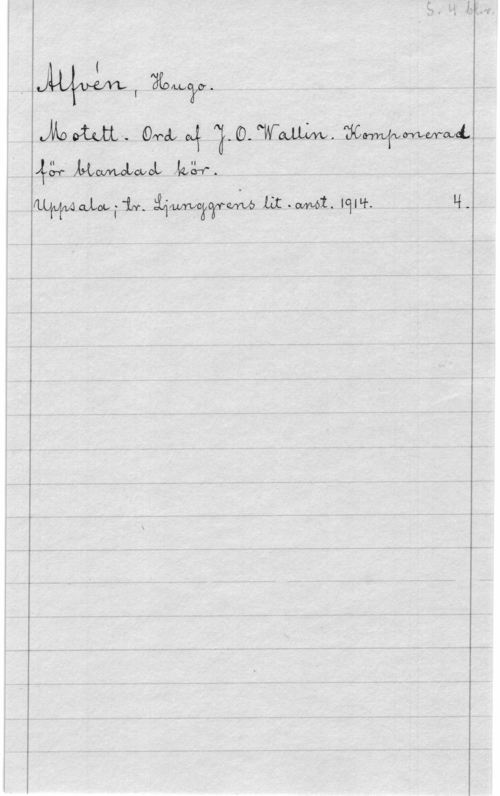 S. 4 bl.
Alfvén, Hugo.
Motett. Ord af J. O. Wallin. Komponerad
för blandad kör.
Uppsala; tr. Ljunggrens lit. anst. 1914. 4.